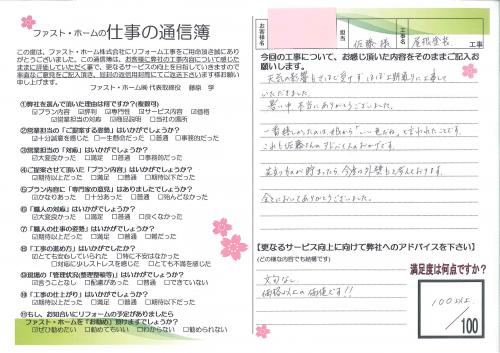 ファスト・ホームの仕事の通信簿
この度は、ファスト・ホーム株式会社にリフォーム工事をご用命頂き誠に
ありがとうございました。この通信簿は、お客様に弊社の工事内容について感じた
ままに評価していただく事で、更なるサービスの向上を目指していきますので
率直なご意見をご記入頂き、返却の返信用封筒にてご返送下さいます様お願い
申し上げます。
ファスト・ホーム㈱ 代表取締役 藤原 学
①弊社を選んで頂いた理由は何ですか?(複数可)
☑プラン内容 ☑評判 ☑専門性 ☑サービス内容 ☑価格
☑営業担当の対応 ☑商品説明 □当社の場所
②営業担当の「ご提案する姿勢」はいかがでしょうか?
☑十分誠意を感じた □一生懸命だった □普通 □事務的だった
③営業担当の「対応」はいかがでしょうか?
☑大変良かった □満足 □普通 □事務的だった
④ご提案させて頂いた「プラン内容」はいかがでしょうか?
☑期待以上だった □満足 □普通 □期待以下だった
⑤プラン内容に「専門家の意見」はありましたでしょうか?
☑かなりあった □十分あった □普通 □殆んどなかった
⑥「職人の対応」はいかがでしょうか?
☑大変良かった □満足 □普通 □良くなかった
⑦「職人の仕事の姿勢」はいかがでしょうか?
☑期待以上だった □満足 □普通 □雑だった
⑧「工事の進め方」はいかがでしたか?
☑とても安心していられた □特に不安はなかった
□対応に少しストレスを感じた □とても不満を感じた
⑨現場の「管理状況(整理整頓等)」はいかがでしょうか?
☑言うことなし □配慮があった □普通 □できていない
⑩「工事の仕上がり」はいかがでしょうか?
☑期待以上だった □満足 □普通 □期待以下だった
⑪もし、お知り合いにリフォームの予定がありましたら
ファスト・ホームを「お勧め」頂けますでしょうか?
☑ぜひ勧めたい □勧めてもいい □わからない □勧められない
お客様名 佐藤 様 工事名 屋根塗装 工事
今回の工事について、お感じ頂いた内容をそのままご記入お
願いします。
天気の影響もでほど受けず、ほぼ工期通りに工事して
いただきました。
暑い中、本当にありがとうございました。
一番嬉しかったのは、他から「いい色だね」と言われたことです。
これも佐藤さんのアドバイスのおかげです。
またお金が貯まったら、今度は外壁もと考えております。
全てにおいてありがとうございました。
【更なるサービス向上に向けて弊社へのアドバイスを下さい】
(どの様な内容でも結構です)
文句なし。
価格以上の価値です!!
満足度は何点ですか?
100以上
/100